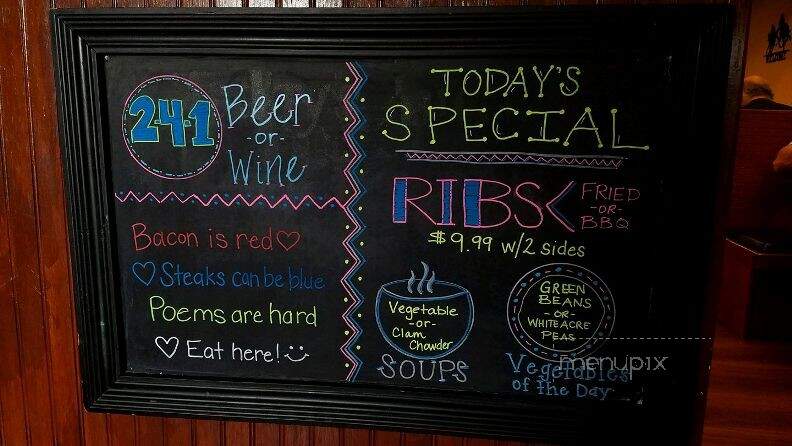 2-4-1
Beer
-or-
Wine
Bacon is red
Steaks can be blue
Poems are hard
Eat here!
TODAY'S
SPECIAL
RIBS
FRIED
-OR-
BBQ
$9.99 w/2 sides
Vegetable
-or-
Clam
Chowder
SOUPS
GREEN
BEANS
-OR-
WHITEACRE
PEAS
Vegetables
of the Day
menupix